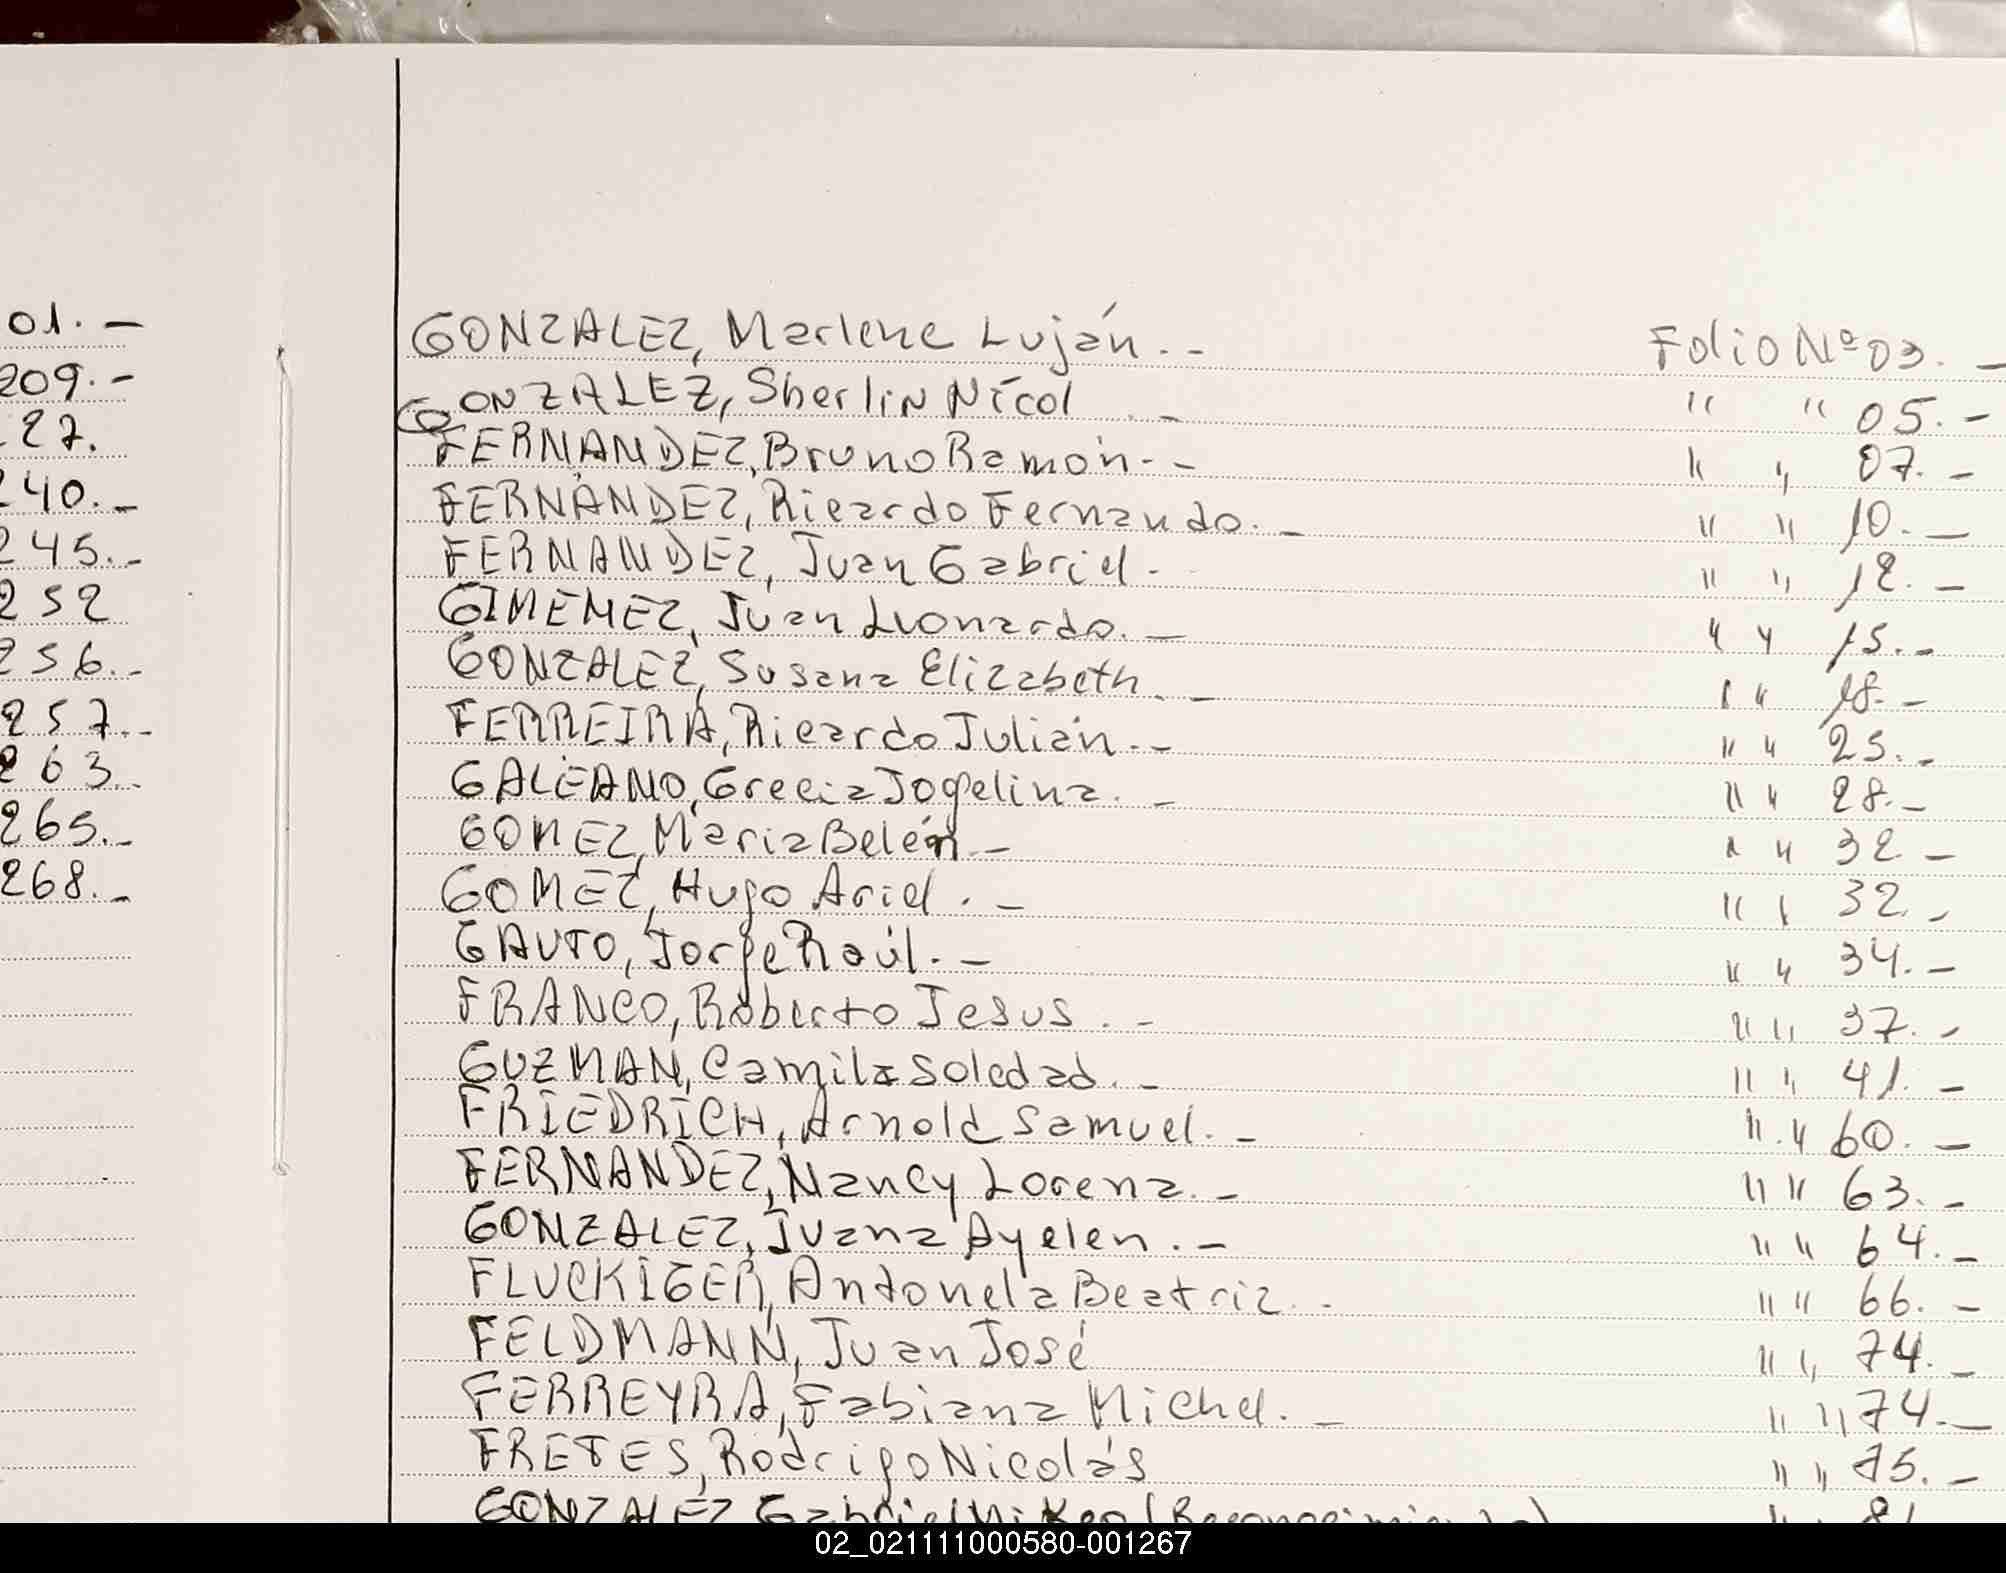 01. -
209. -
27.
240. -
245. -
252
256. -
257. -
263. -
265. -
268. -
GONZALEZ, Marlene Luján. - Folio Nº 03. -
GONZALEZ, Sherlin Nicol . - " " 05. -
FERNANDEZ, Bruno Ramón. - " " 07. -
FERNANDEZ, Ricardo Fernando. - " " 10. -
FERNANDEZ, Juan Gabriel. " " 12. -
GIMENEZ, Juan Leonardo. - " " 15. -
GONZALEZ, Susana Elizabeth. - " " 18. -
FERREIRA, Ricardo Julián. - " " 25. -
GALEANO, Grecia Jogelina. - " " 28. -
GOMEZ, Maria Belén. - " " 32 -
GOMEZ, Hugo Ariel. - " " 32. -
GAUTO, Jorge Raúl. - " " 34. -
FRANCO, Roberto Jesus. - " " 37. -
GUZMAN, Camila Soledad. - " " 41. -
FRIEDRICH, Arnold Samuel. - " " 60. -
FERNANDEZ, Nancy Lorena. - " " 63. -
GONZALEZ, Juana Ayelen. - " " 64. -
FLUCKIGER, Antonela Beatriz. - " " 66. -
FELDMANN, Juan José " " 74. -
FERREYRA, Fabiana Michel. - " " 74. -
FRETES, Rodrigo Nicolás " " 75. -
GONZALEZ Gabriel (Reconocimiento) " 81
02_021111000580-001267